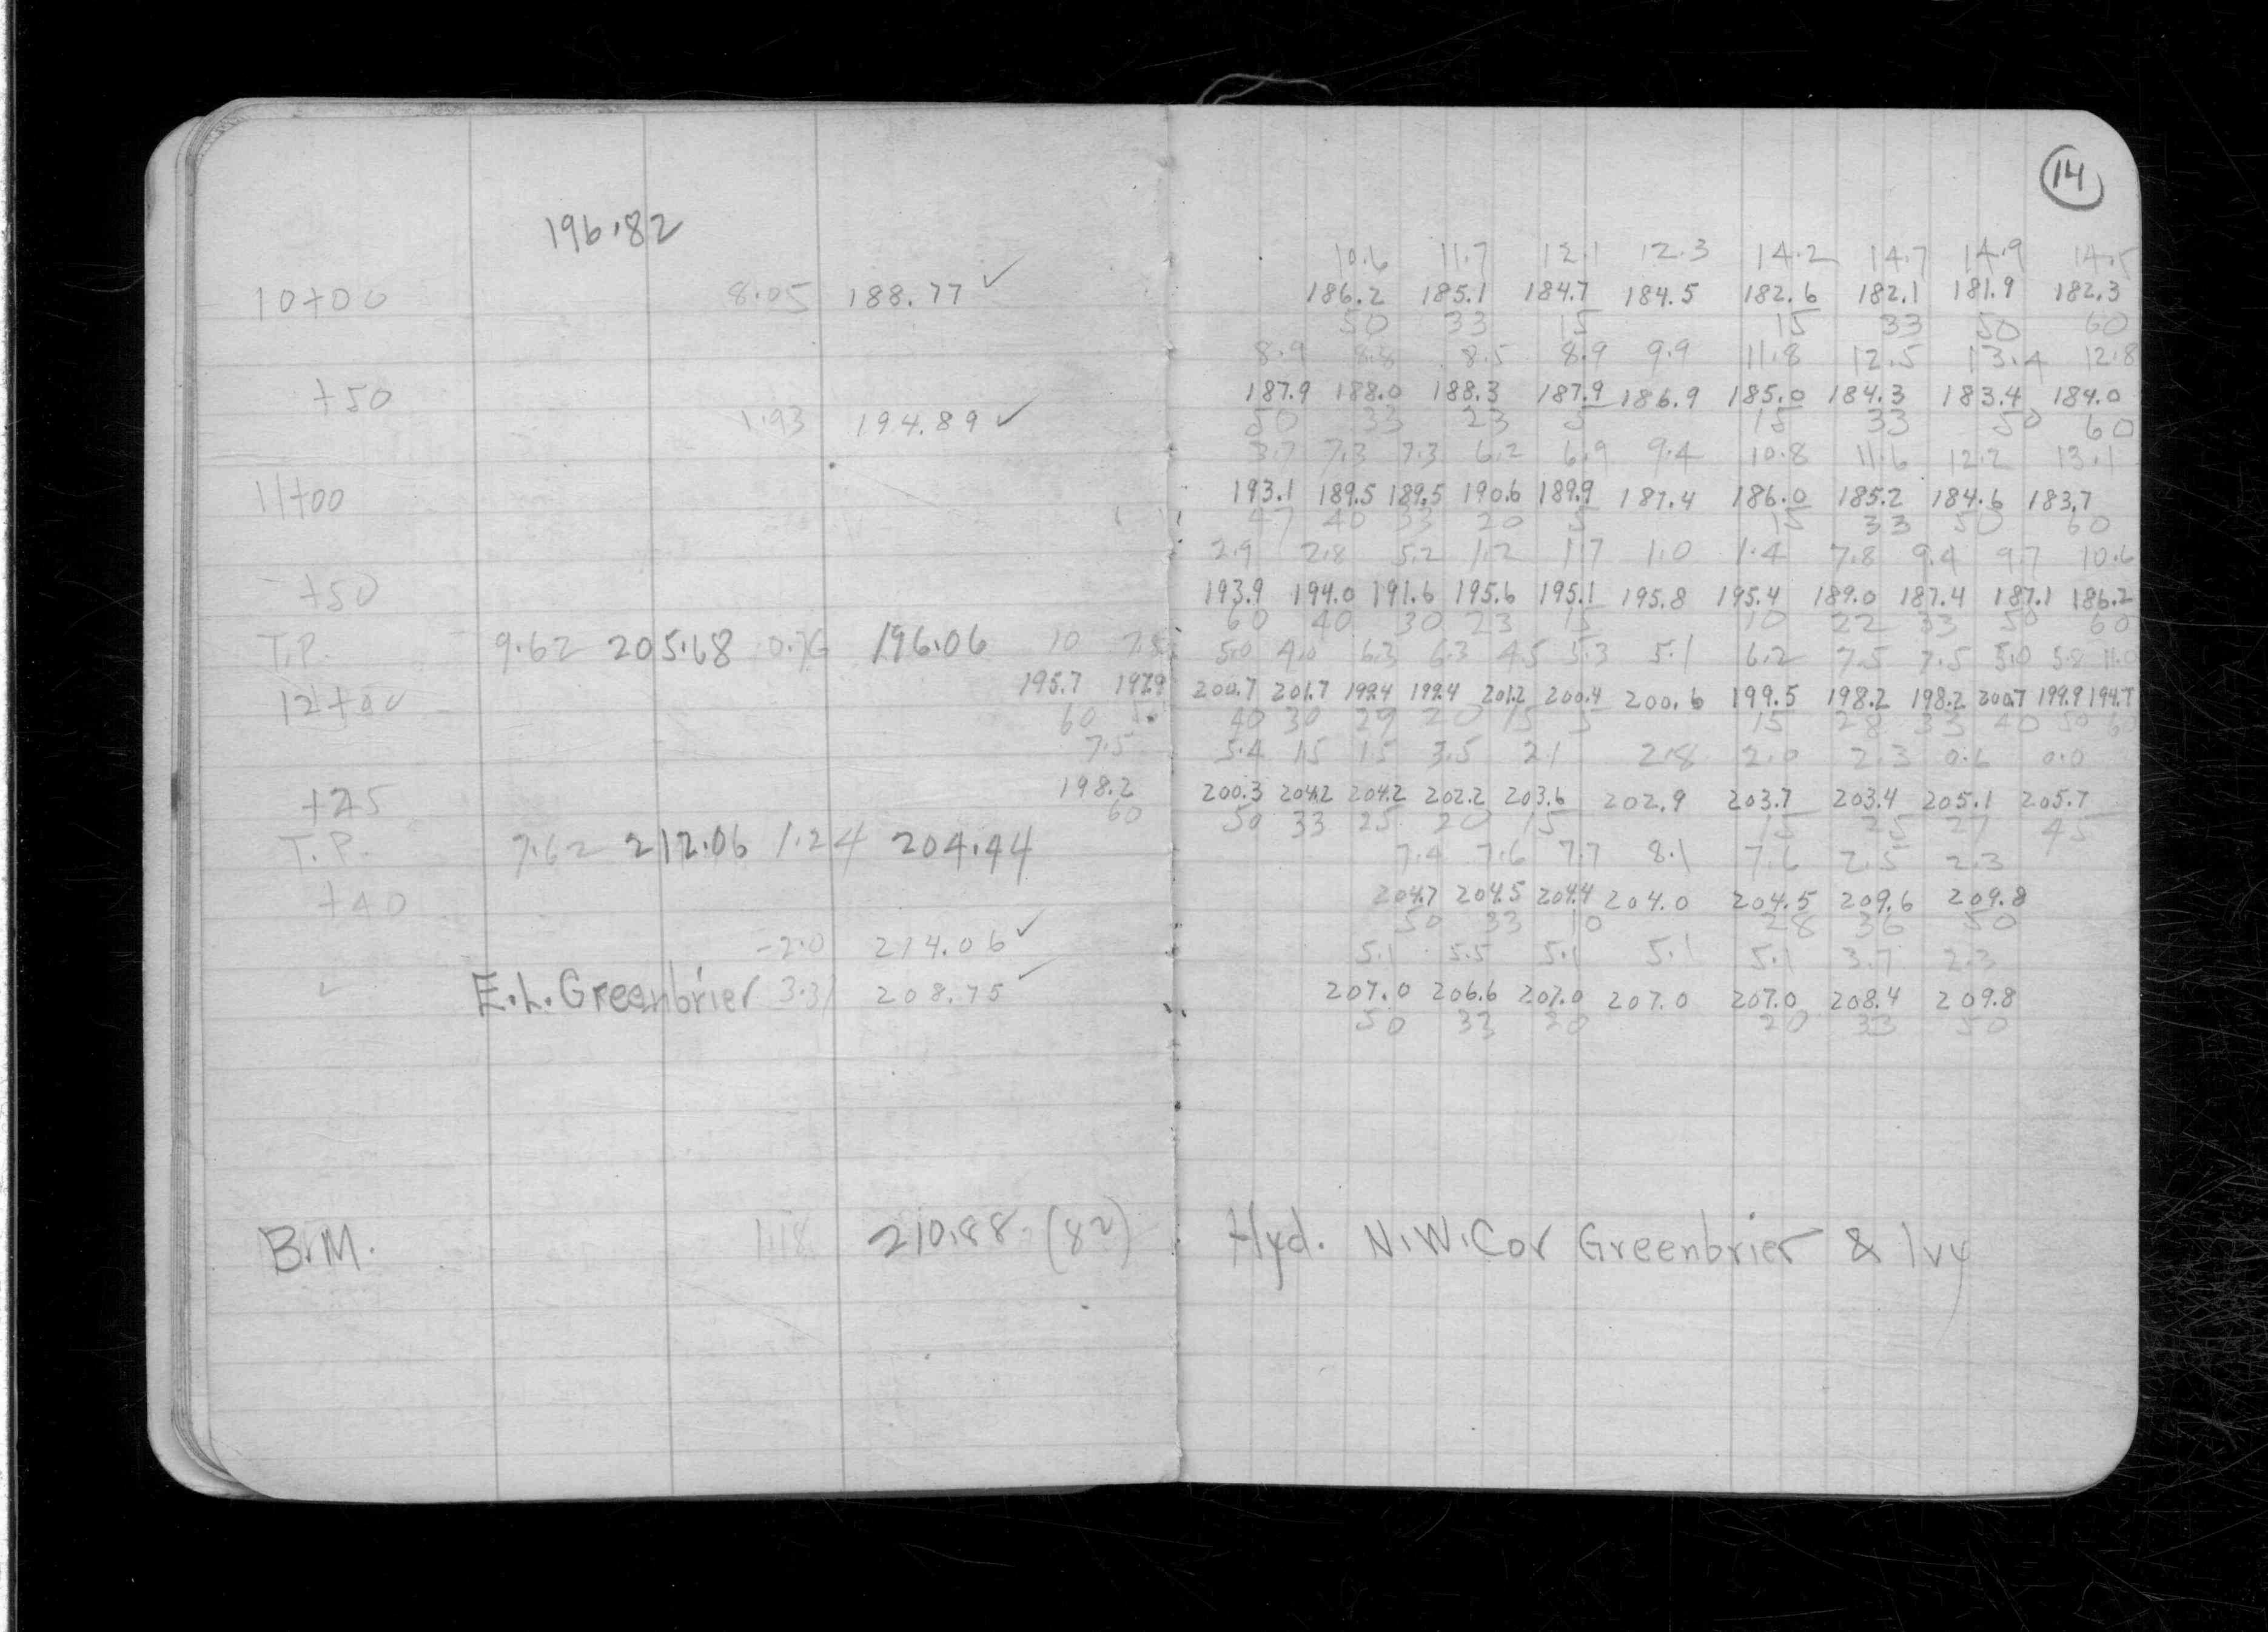 14
196.82
10.6 11.7 12.1 12.3 14.2 14.7 14.9 14.5
10+00 8.05 188.77 ✓ 186.2 185.1 184.7 184.5 182.6 182.1 181.9 182.3
50 33 15 15 33 50 60
8.9 8.8 8.5 8.9 9.9 11.8 12.5 13.4 12.8
+50 187.9 188.0 188.3 187.9 186.9 185.0 184.3 183.4 184.0
1.93 194.89 ✓ 50 33 23 5 15 33 50 60
3.7 7.3 7.3 6.2 6.9 9.4 10.8 11.6 12.2 13.1
11+00 193.1 189.5 189.5 190.6 189.9 187.4 186.0 185.2 184.6 183.7
47 40 33 20 5 15 33 50 60
2.9 2.8 5.2 1.2 1.7 1.0 1.4 7.8 9.4 9.7 10.6
+50 193.9 194.0 191.6 195.6 195.1 195.8 195.4 189.0 187.4 187.1 186.2
60 40 30 23 15 10 22 33 50 60
T.P. 9.62 205.68 0.76 196.06 10 7.8 5.0 4.0 6.3 6.3 4.5 5.3 5.1 6.2 7.5 7.5 5.0 5.8 11.0
12+00 195.7 197.9 200.7 201.7 199.4 199.4 201.2 200.4 200.6 199.5 198.2 198.2 200.7 199.9 194.7
60 50 40 30 29 20 15 5 15 28 33 40 50 60
7.5 5.4 1.5 1.5 3.5 2.1 2.8 2.0 2.3 0.6 0.0
+25 198.2 200.3 204.2 204.2 202.2 203.6 202.9 203.7 203.4 205.1 205.7
60 50 33 25 20 15 15 25 27 45
T.P. 7.62 212.06 1.24 204.44 7.4 7.6 7.7 8.1 7.6 2.5 2.3
+40 204.7 204.5 204.4 204.0 204.5 209.6 209.8
50 33 10 28 36 50
-2.0 214.06 ✓ 5.1 5.5 5.1 5.1 5.1 3.7 2.3
✓ E.L. Greenbrier 3.31 208.75 ✓ 207.0 206.6 207.0 207.0 207.0 208.4 209.8
50 33 20 20 33 50
B.M. 1.18 210.88 (82) Hyd. N.W. Cor Greenbrier & Ivy